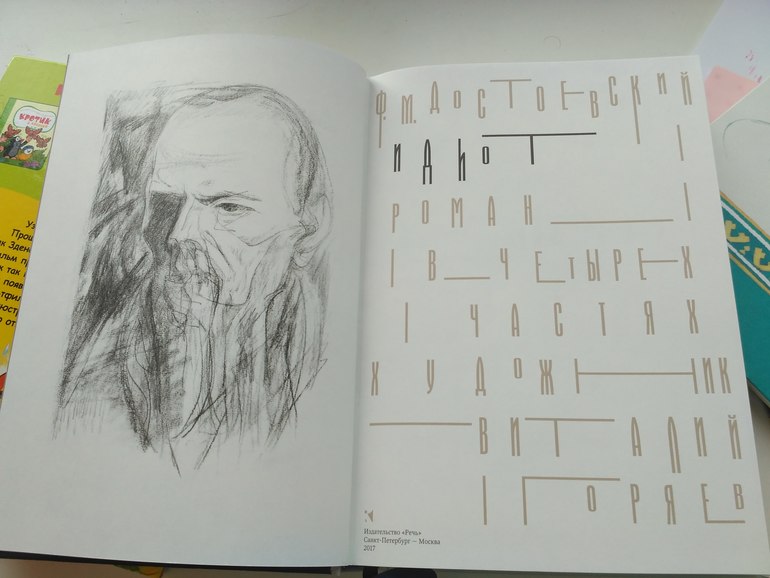 Ф. М. ДОСТОЕВСКИЙ
ИДИОТ
РОМАН
В ЧЕТЫРЕХ
ЧАСТЯХ
ХУДОЖНИК
ВИТАЛИЙ
ГОРЯЕВ
Издательство «Речь»
Санкт-Петербург — Москва
2017
КРОТИК